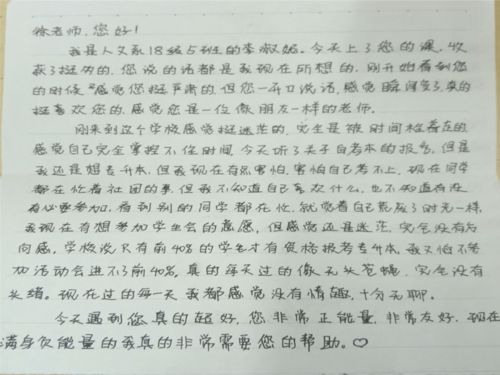 徐老师，您好！
我是人文系18级占班的李淑媛。今天上了您的课，收
获了挺多的，您说的话都是我现在所想的，刚开始看到您
的时候，感觉您挺严肃的，但您一开口说话，感觉瞬间变了，真的
挺喜欢您的，感觉您是一位像朋友一样的老师。
刚来到这个学校感觉挺迷茫的，完全是被时间推着走的
感觉自己完全掌握不住时间，今天听了关于自考本的报告，但是
我还是想专升本，但我现在有些害怕，害怕自己考不上，现在同学
都在忙着社团的事，但我不知道自己喜欢什么，也不知道有没
有必要参加，看到别的同学都在忙，就觉着自己荒废了时光一样，
我现在有想参加学生会的意愿，但感觉还是迷茫，完全没有方
向感，学校说只有前40%的学生才有资格报考专升本，我又怕不参
加活动会进不了前40%，真的每天过的像无头苍蝇，完全没有
头绪。现在过的每一天我都感觉没有情趣，十分无聊。
今天遇到您真的超好，您非常正能量，非常友好，现在
满身负能量的我真的非常需要您的帮助。♡